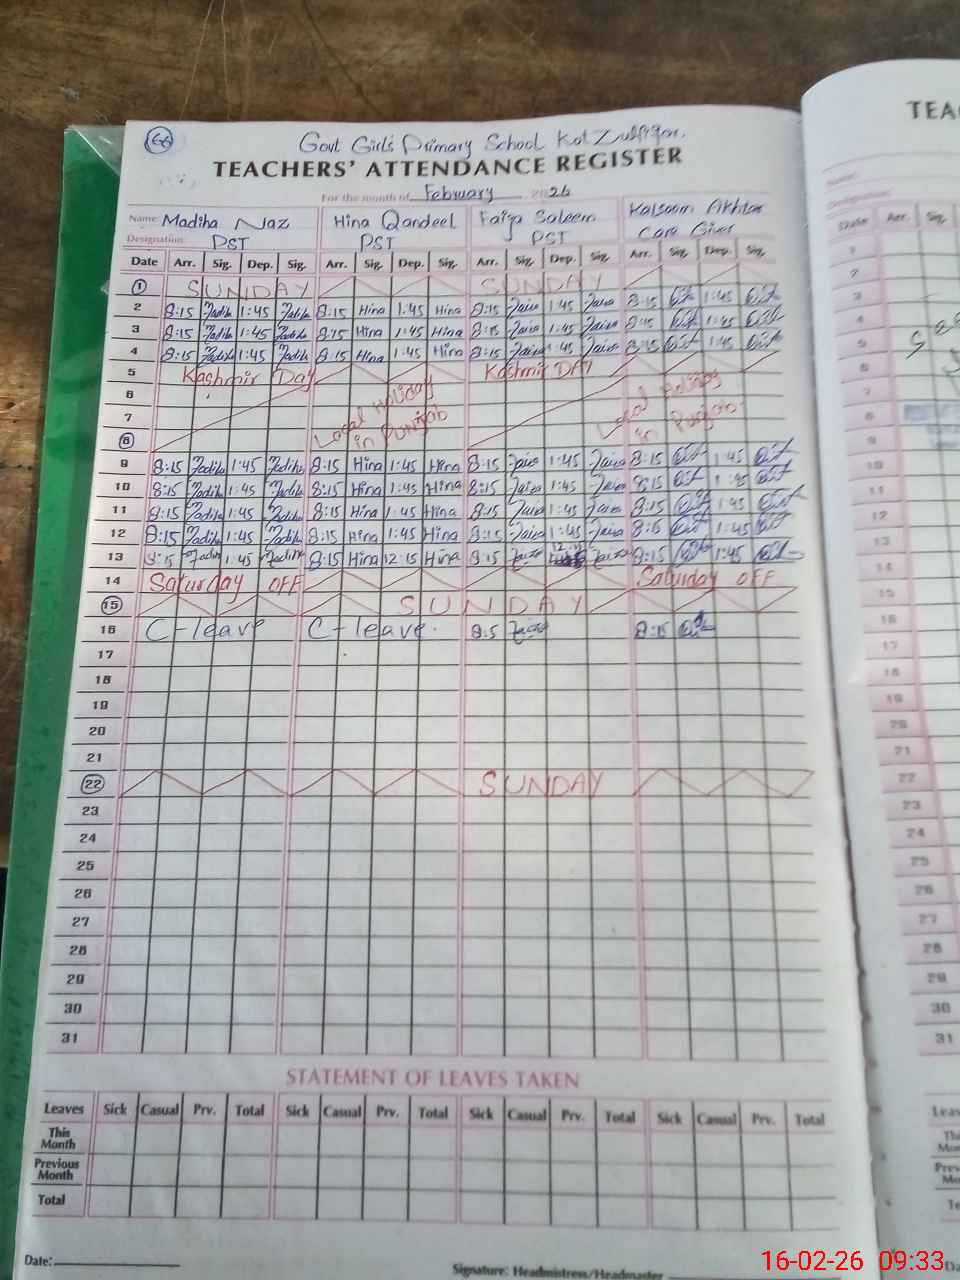 66
Govt Girls Primary School Kot Zulfiqar.
TEACHERS' ATTENDANCE REGISTER
For the month of February 2026
Name: Madiha Naz Hina Qandeel Faiza Saleem Kalsoom Akhtar
Designation: PST PST PST Care Giver
Date Arr. Sig. Dep. Sig. Arr. Sig. Dep. Sig. Arr. Sig. Dep. Sig. Arr. Sig. Dep. Sig.
1 SUNDAY SUNDAY
2 8:15 Madiha 1:45 Madiha 8:15 Hina 1:45 Hina 8:15 Faiza 1:45 Faiza 8:15 1:45
3 8:15 Madiha 1:45 Madiha 8:15 Hina 1:45 Hina 8:15 Faiza 1:45 Faiza 8:15 1:45
4 8:15 Madiha 1:45 Madiha 8:15 Hina 1:45 Hina 8:15 Faiza 1:45 Faiza 8:15 1:45
5 Kashmir Day Kashmir DAY
6 Local Holiday Local Holiday
7 in Punjab in Punjab.
8
9 8:15 Madiha 1:45 Madiha 8:15 Hina 1:45 Hina 8:15 Faiza 1:45 Faiza 8:15 1:45
10 8:15 Madiha 1:45 Madiha 8:15 Hina 1:45 Hina 8:15 Faiza 1:45 Faiza 8:15 1:45
11 8:15 Madiha 1:45 Madiha 8:15 Hina 1:45 Hina 8:15 Faiza 1:45 Faiza 8:15 1:45
12 8:15 Madiha 1:45 Madiha 8:15 Hina 1:45 Hina 8:15 Faiza 1:45 Faiza 1:45
13 8:15 Madiha 1:45 Madiha 8:15 Hina 12:15 Hina 8:15 Faiza Faiza 8:15 1:45
14 Saturday OFF Saturday OFF
15 SUNDAY
16 C-leave C-leave. 8:5 Faiza 8:15
17
18
19
20
21
22 SUNDAY
23
24
25
26
27
28
29
30
31
STATEMENT OF LEAVES TAKEN
Leaves Sick Casual Prv. Total Sick Casual Prv. Total Sick Casual Prv. Total Sick Casual Prv. Total
This Month
Previous Month
Total
Date:
Signature: Headmistress/Headmaster
TEA
Date Arr. Sig.
1
2
3
4
5
6
7
8
9
10
11
12
13
14
15
16
17
18
19
20
21
22
23
24
25
26
27
28
29
30
31
16-02-26 09:33